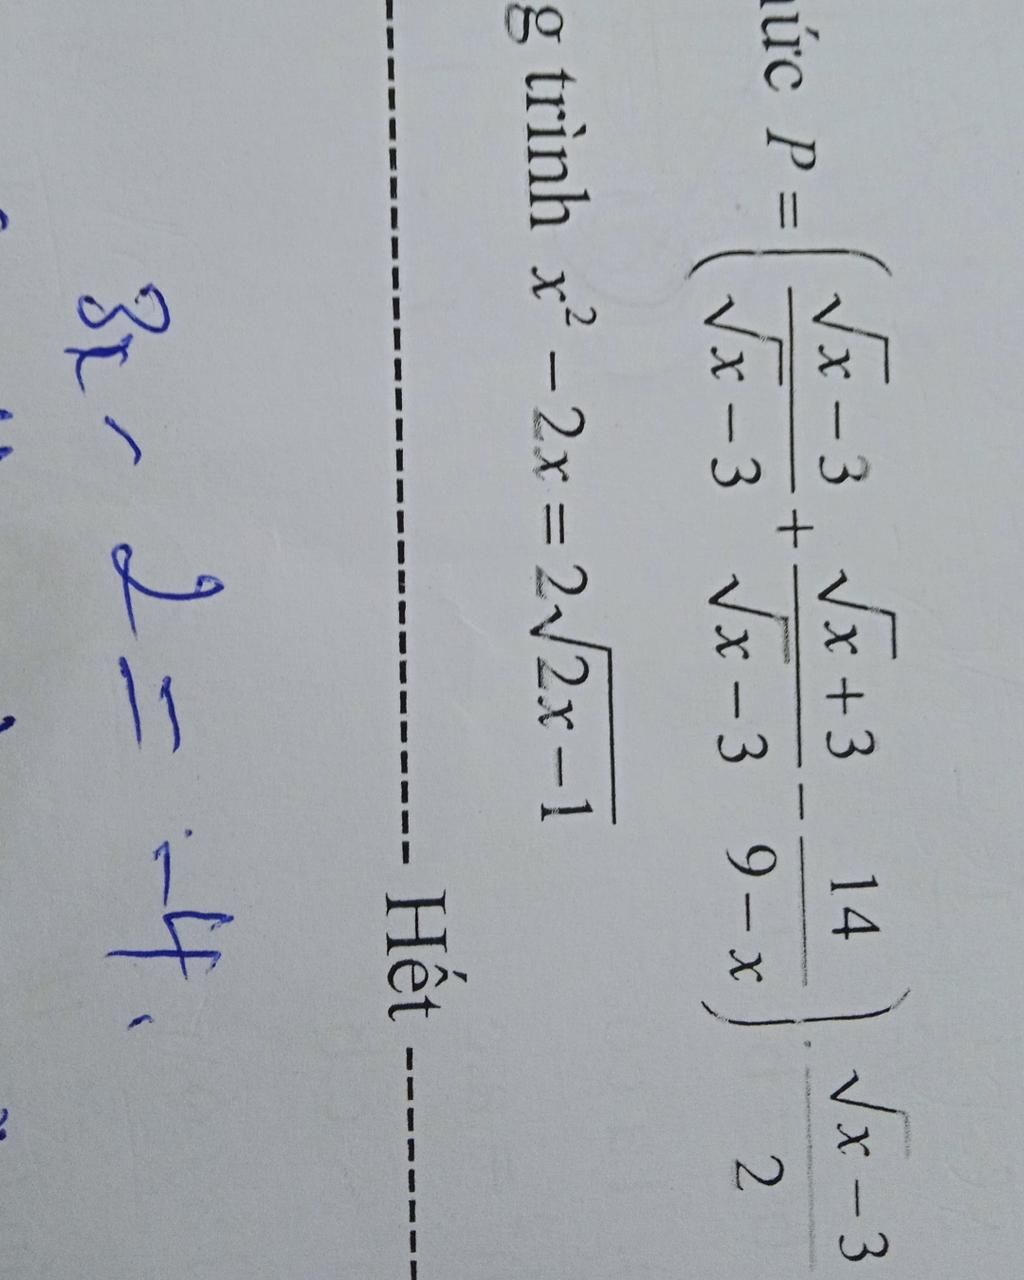 ức P = \left( \frac{\sqrt{x} - 3}{\sqrt{x} - 3} + \frac{\sqrt{x} + 3}{\sqrt{x} - 3} - \frac{14}{9 - x} \right) \cdot \frac{\sqrt{x} - 3}{2}
g trình x² - 2x = 2\sqrt{2x - 1}
-------------------- Hết --------
3x - 2 = -4.